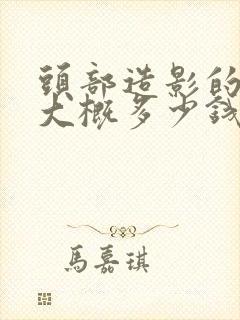 頭部造影的
大概多少錢
馬嘉琪